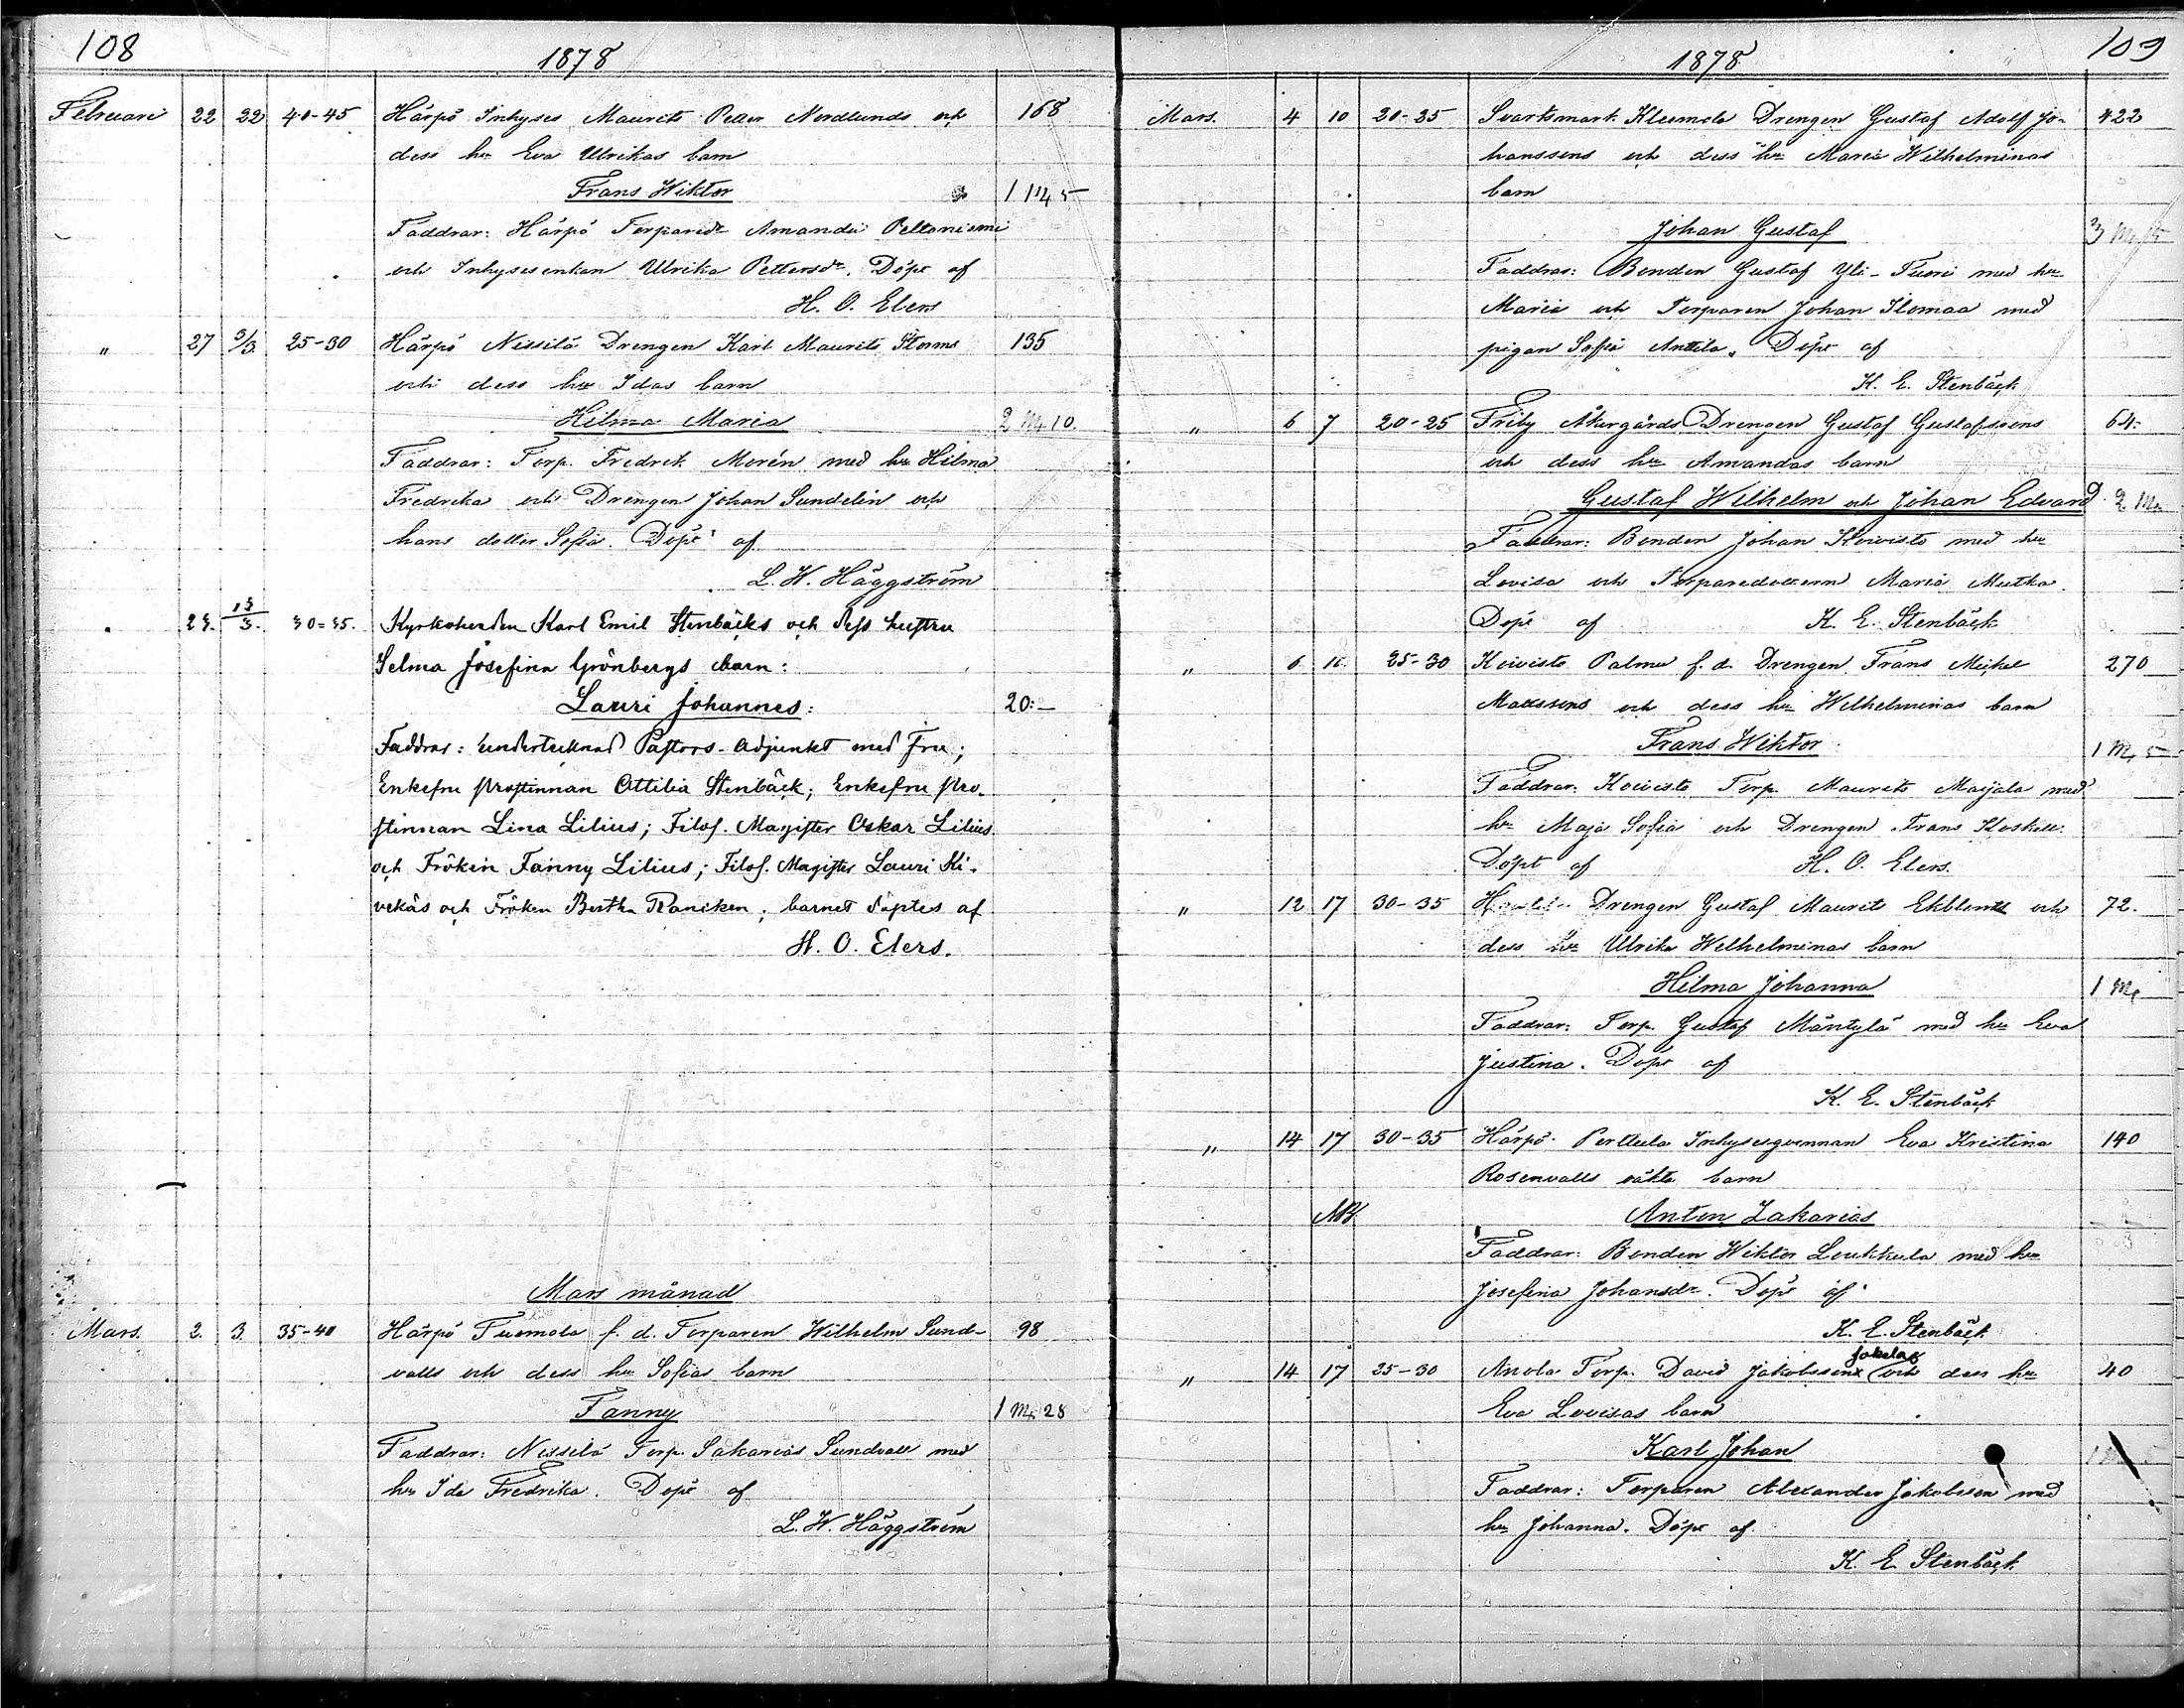 108
1878
Februari 22 22 40-45 Härpö Inhyses Maurits Petter Nordlunds och 168
dess hu Eva Ulrikas barn
Frans Wiktor 1 M 45
Faddrar: Härpö Torparedr Amanda Peltoniemi
och Inhysesenkan Ulrika Pettersdr. Döpt af
H. O. Elers
" 27 3/3. 25-30 Härpö Nissilä Drengen Karl Maurits Storms 135
och dess hu Idas barn
Hilma Maria 2 M 10.
Faddrar: Torp. Fredrik Morén med hu Hilma
Fredrika och Drengen Johan Sundelin och
hans dotter Sofia. Döpt af
L. W. Häggström
30-35. Kyrkoherden Karl Emil Stenbäcks och dess hustru
Selma Josefina Grönbergs barn:
Lauri Johannes: 20:-
Faddrar: undertecknad Pastors-Adjunkt med Fru;
Enkefru Prostinnan Ottilia Stenbäck; Enkefru Pro-
stinnan Lina Lilius; Filos. Magister Oskar Lilius
och Fröken Fanny Lilius; Filos. Magister Lauri Ki-
vekäs och Fröken Bertha Rancken; barnet döptes af
H. O. Elers.
Mars månad
Mars. 2. 3. 35-40 Härpö Tuomola f. d. Torparen Wilhelm Sund- 98
valls och dess hu Sofias barn
Fanny 1 M 28
Faddrar: Nissilä Torp. Sakarias Sundvall med
hu Ida Fredrika. Döpt af
L. W. Häggström
109
1878
Mars. 4 10 20-25 Svartsmark Kleemola Drengen Gustaf Adolf Jo- 422
hanssons och dess hu Maria Wilhelminas
barn
Johan Gustaf 3 M
Faddrar: Bonden Gustaf Yli-Tuori med hu
Maria och Torparen Johan Ilomaa med
pigan Sofia Antila. Döpt af
K. E. Stenbäck
" 6 7 20-25 Friby Åkergårds Drengen Gustaf Gustafssons 64.
och dess hu Amandas barn
Gustaf Wilhelm och Johan Edvard 2 M
Faddrar: Bonden Johan Koivisto med hu
Lovisa och Torparedottern Maria Mutka.
Döpt af K. E. Stenbäck
" 6 25-30 Koivisto Palmu f. d. Drengen Frans Mickel 270
Matssons och dess hu Wilhelminas barn
Frans Wiktor 1 M 5
Faddrar: Koivisto Torp. Maurits Maijala med
hu Maja Sofia och Drengen Frans
Döpt af H. O. Elers.
" 12 17 30-35 Drengen Gustaf Maurits Ekblom och 72.
dess hu Ulrika Wilhelminas barn
Hilma Johanna 1 M
Faddrar: Torp. Gustaf Mäntylä med hu Eva
Justina. Döpt af
K. E. Stenbäck
" 14 17 30-35 Härpö Perttula Inhyseqvinnan Eva Kristina 140
Rosenvalls oäkta barn
NB. Anton Zakarias
Faddrar: Bonden Wiktor Loukkula med hu
Josefina Johansdr. Döpt af
K. E. Stenbäck
" 14 17 25-30 Anola Torp. David Jakobsson Jokelas och dess hu 40
Eva Lovisas barn
Karl Johan
Faddrar: Torparen Alexander Jakobsson med
hu Johanna. Döpt af
K. E. Stenbäck